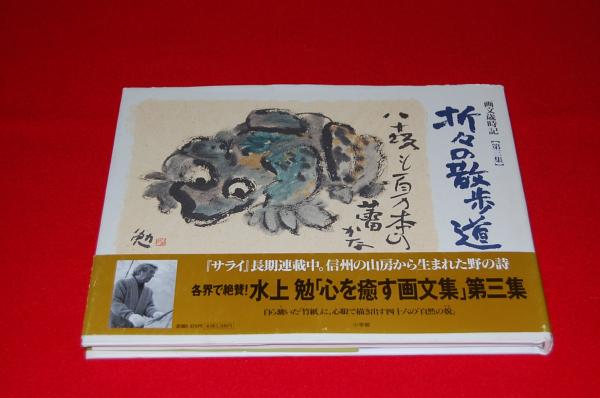 画文歳時記【第三集】
折々の散歩道
八十坂も百の本の
蕾かな
勉
『サライ』長期連載中。信州の山房から生まれた野の詩
各界で絶賛!水上 勉「心を癒す画文集」第三集
自ら漉いた「竹紙」に、心眼で描き出す四十六の「自然の貌」
小学館